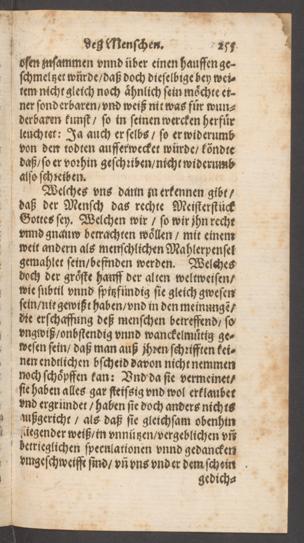 deß Menschen. 255
osen zusammen vnnd über einen hauffen ge-
schmelzet würde/daß doch dieselbige bey wei-
tem nicht gleich noch ähnlich sein möchte ei-
ner sonderbaren/vnd weiß nit was für wun-
derbaren kunst/ so in seinen wercken herfür
leuchtet: Ja auch er selbs/ so er widerumb
von den todten aufferwecket würde/ köndte
daß/so er vorhin geschriben/nicht widerumb
also schreiben.
Welches vns dann zu erkennen gibt/
daß der Mensch das rechte Meisterstück
Gottes sey. Welchen wir/ so wir jhn recht
vnnd gnauw betrachten wöllen/ mit einem
weit andern als menschlichen Mahlerpensel
gemahlet sein/befinden werden. Welches
doch der gröste hauff der alten weltweisen/
wie subtil vnnd spitzfündig sie gleich gwesen
sein/nit gewißt haben/vnd in den meinungē/
die erschaffung deß menschen betreffend/ so
vngwiß/onbstendig vnnd wanckelmütig ge-
wesen sein/daß man auß jhren schrifften kei-
nen endtlichen bscheid davon nicht nemmen
noch schöpffen kan: Vnd da sie vermeinet/
sie haben alles gar fleissig vnd wol erklaubet
vnd ergründet/ haben sie doch anders nichts
außgericht/ als daß sie gleichsam obenhin
fliegender weiß/in vnnützen/vergeblichen vñ
betrieglichen speculationen vnnd gedancken
vmgeschweifft sind/ vñ vns vnder dem schein
gedich-